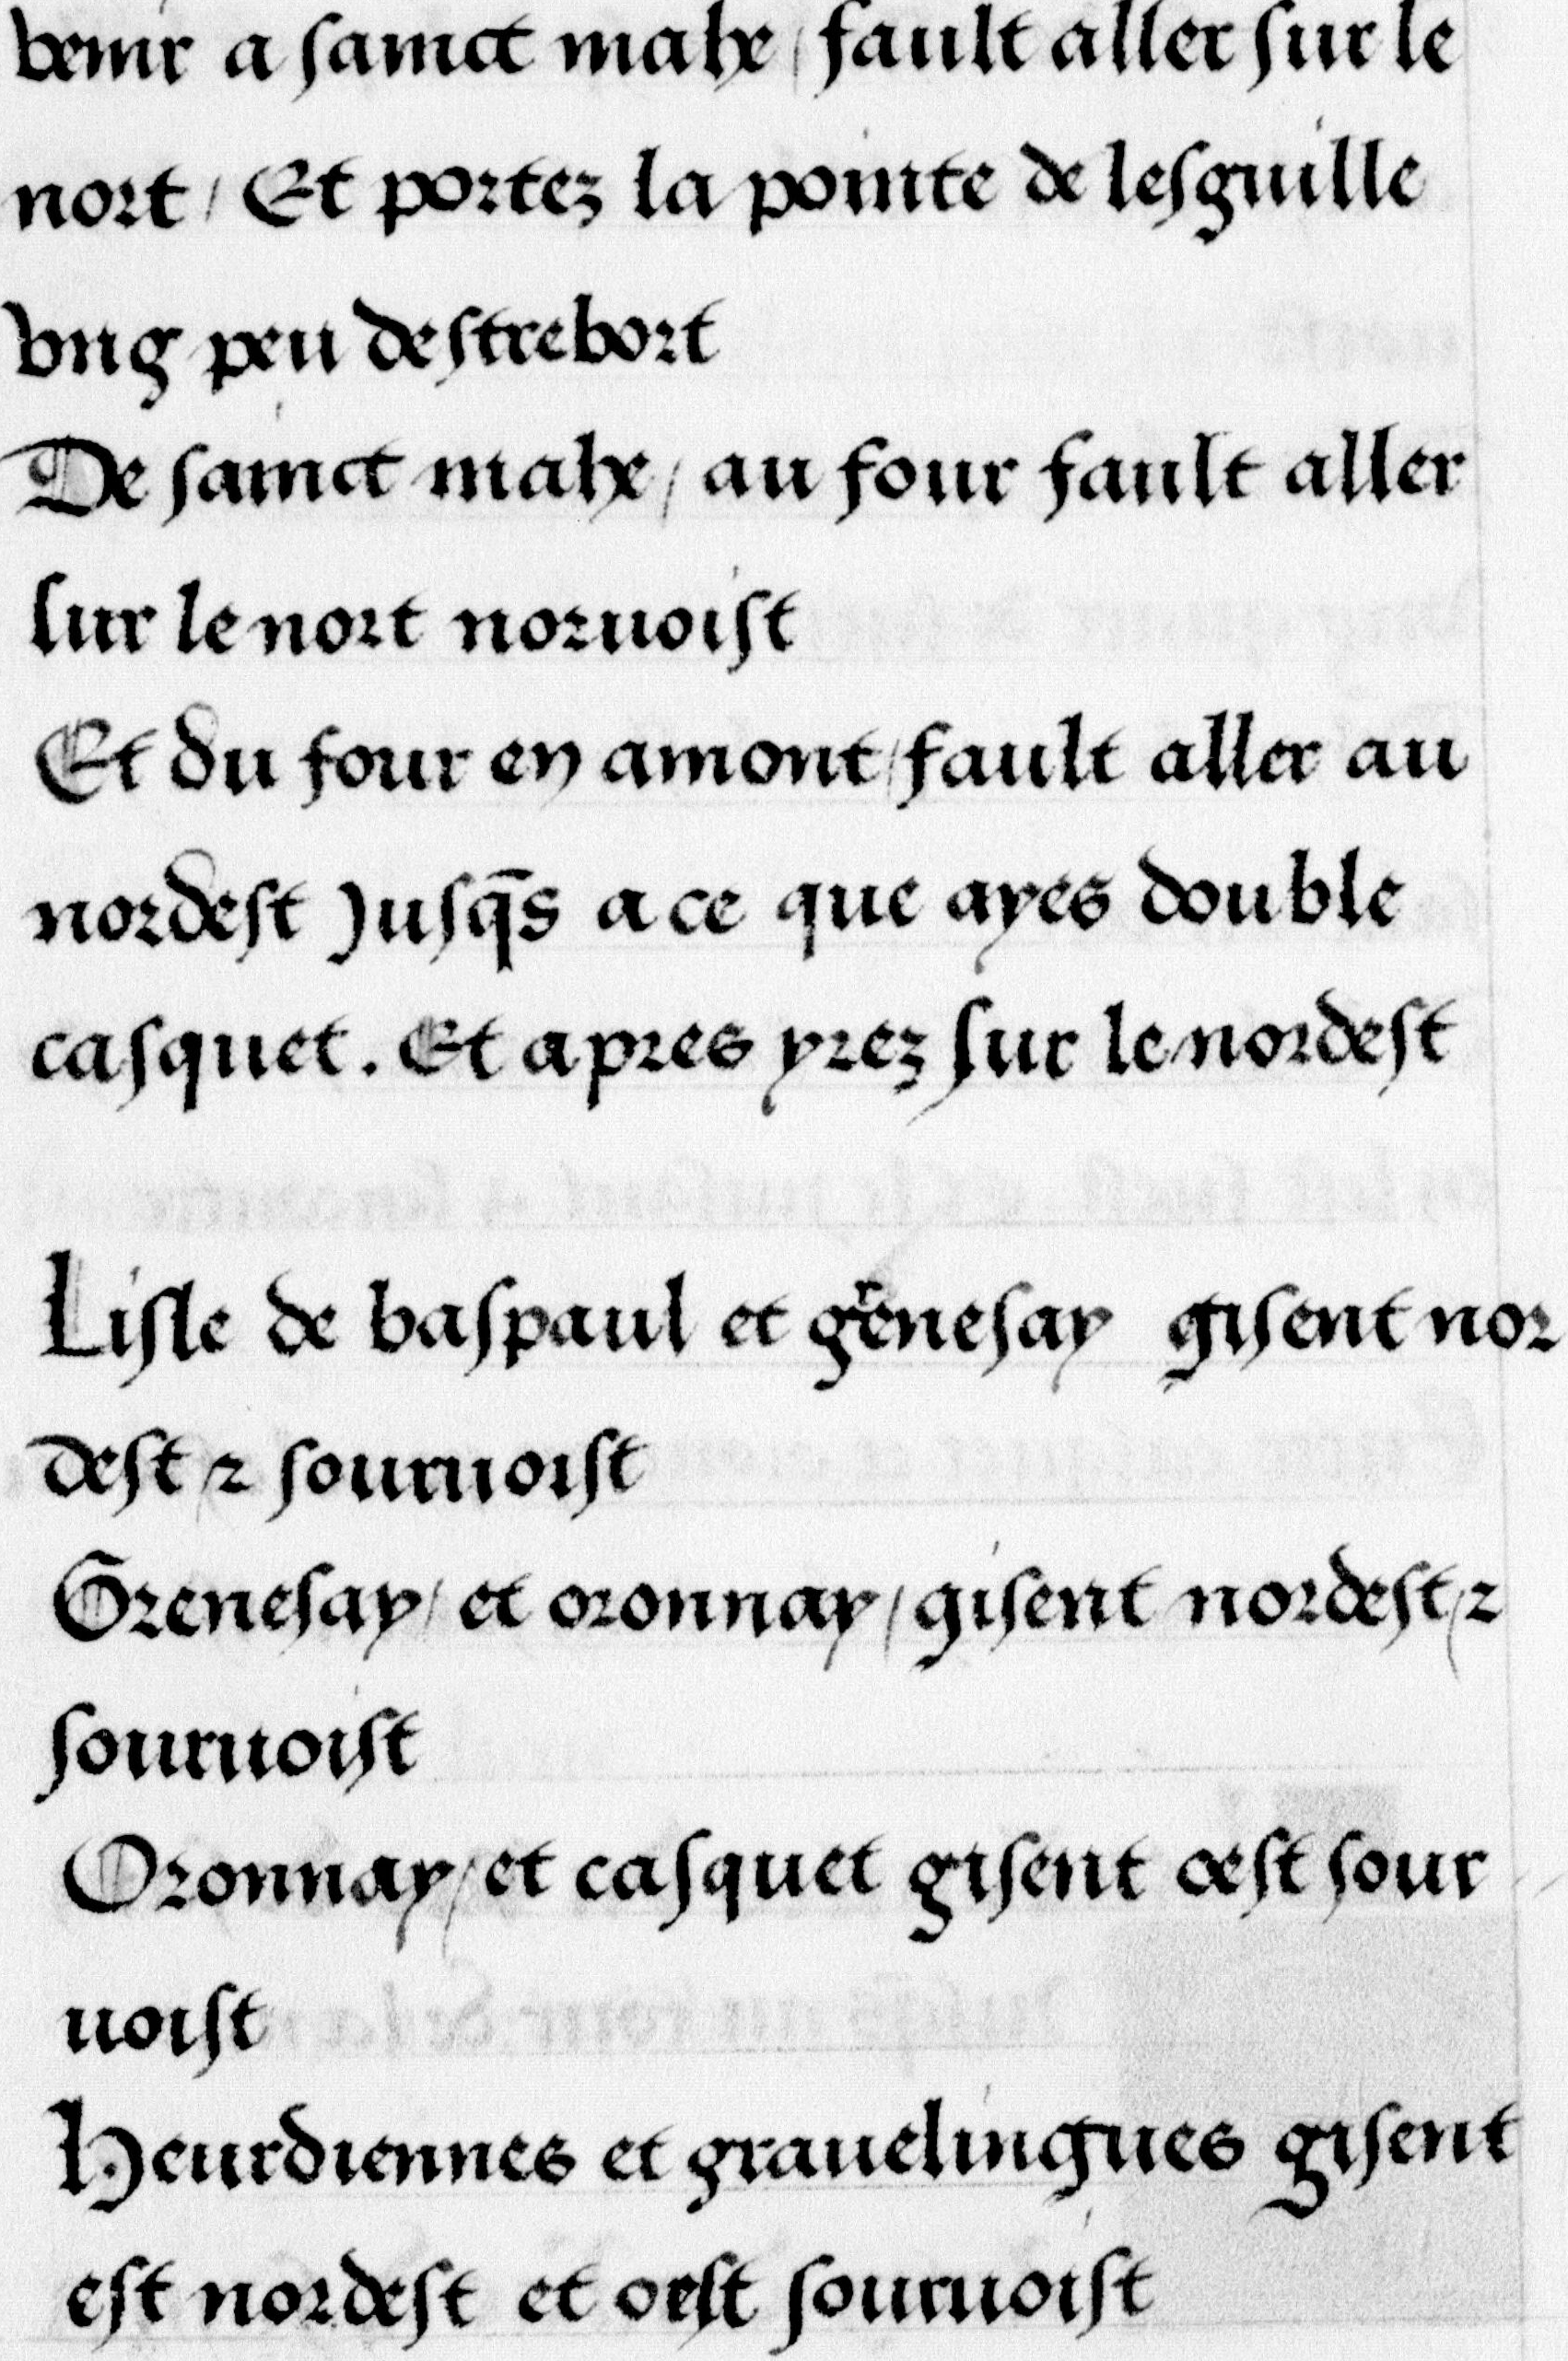 venir a sainct mahe / fault aller sur le
nort / Et portez la pointe de lesguille
vng peu destrebort
De sainct mahe / au four fault aller
sur le nort noruoist
Et du four en amont / fault aller au
nordest Jusq̄s a ce que ayes double
casquet. Et apres yrez sur le nordest
Lisle de baspaul et gͬenesay gisent nor
dest / ⁊ souruoist
Grenesay / et oronnay / gisent nordest / ⁊
souruoist
Oronnay / et casquet gisent oest sour
uoist
Heurdiennes et grauelingues gisent
est nordest et oest souruoist